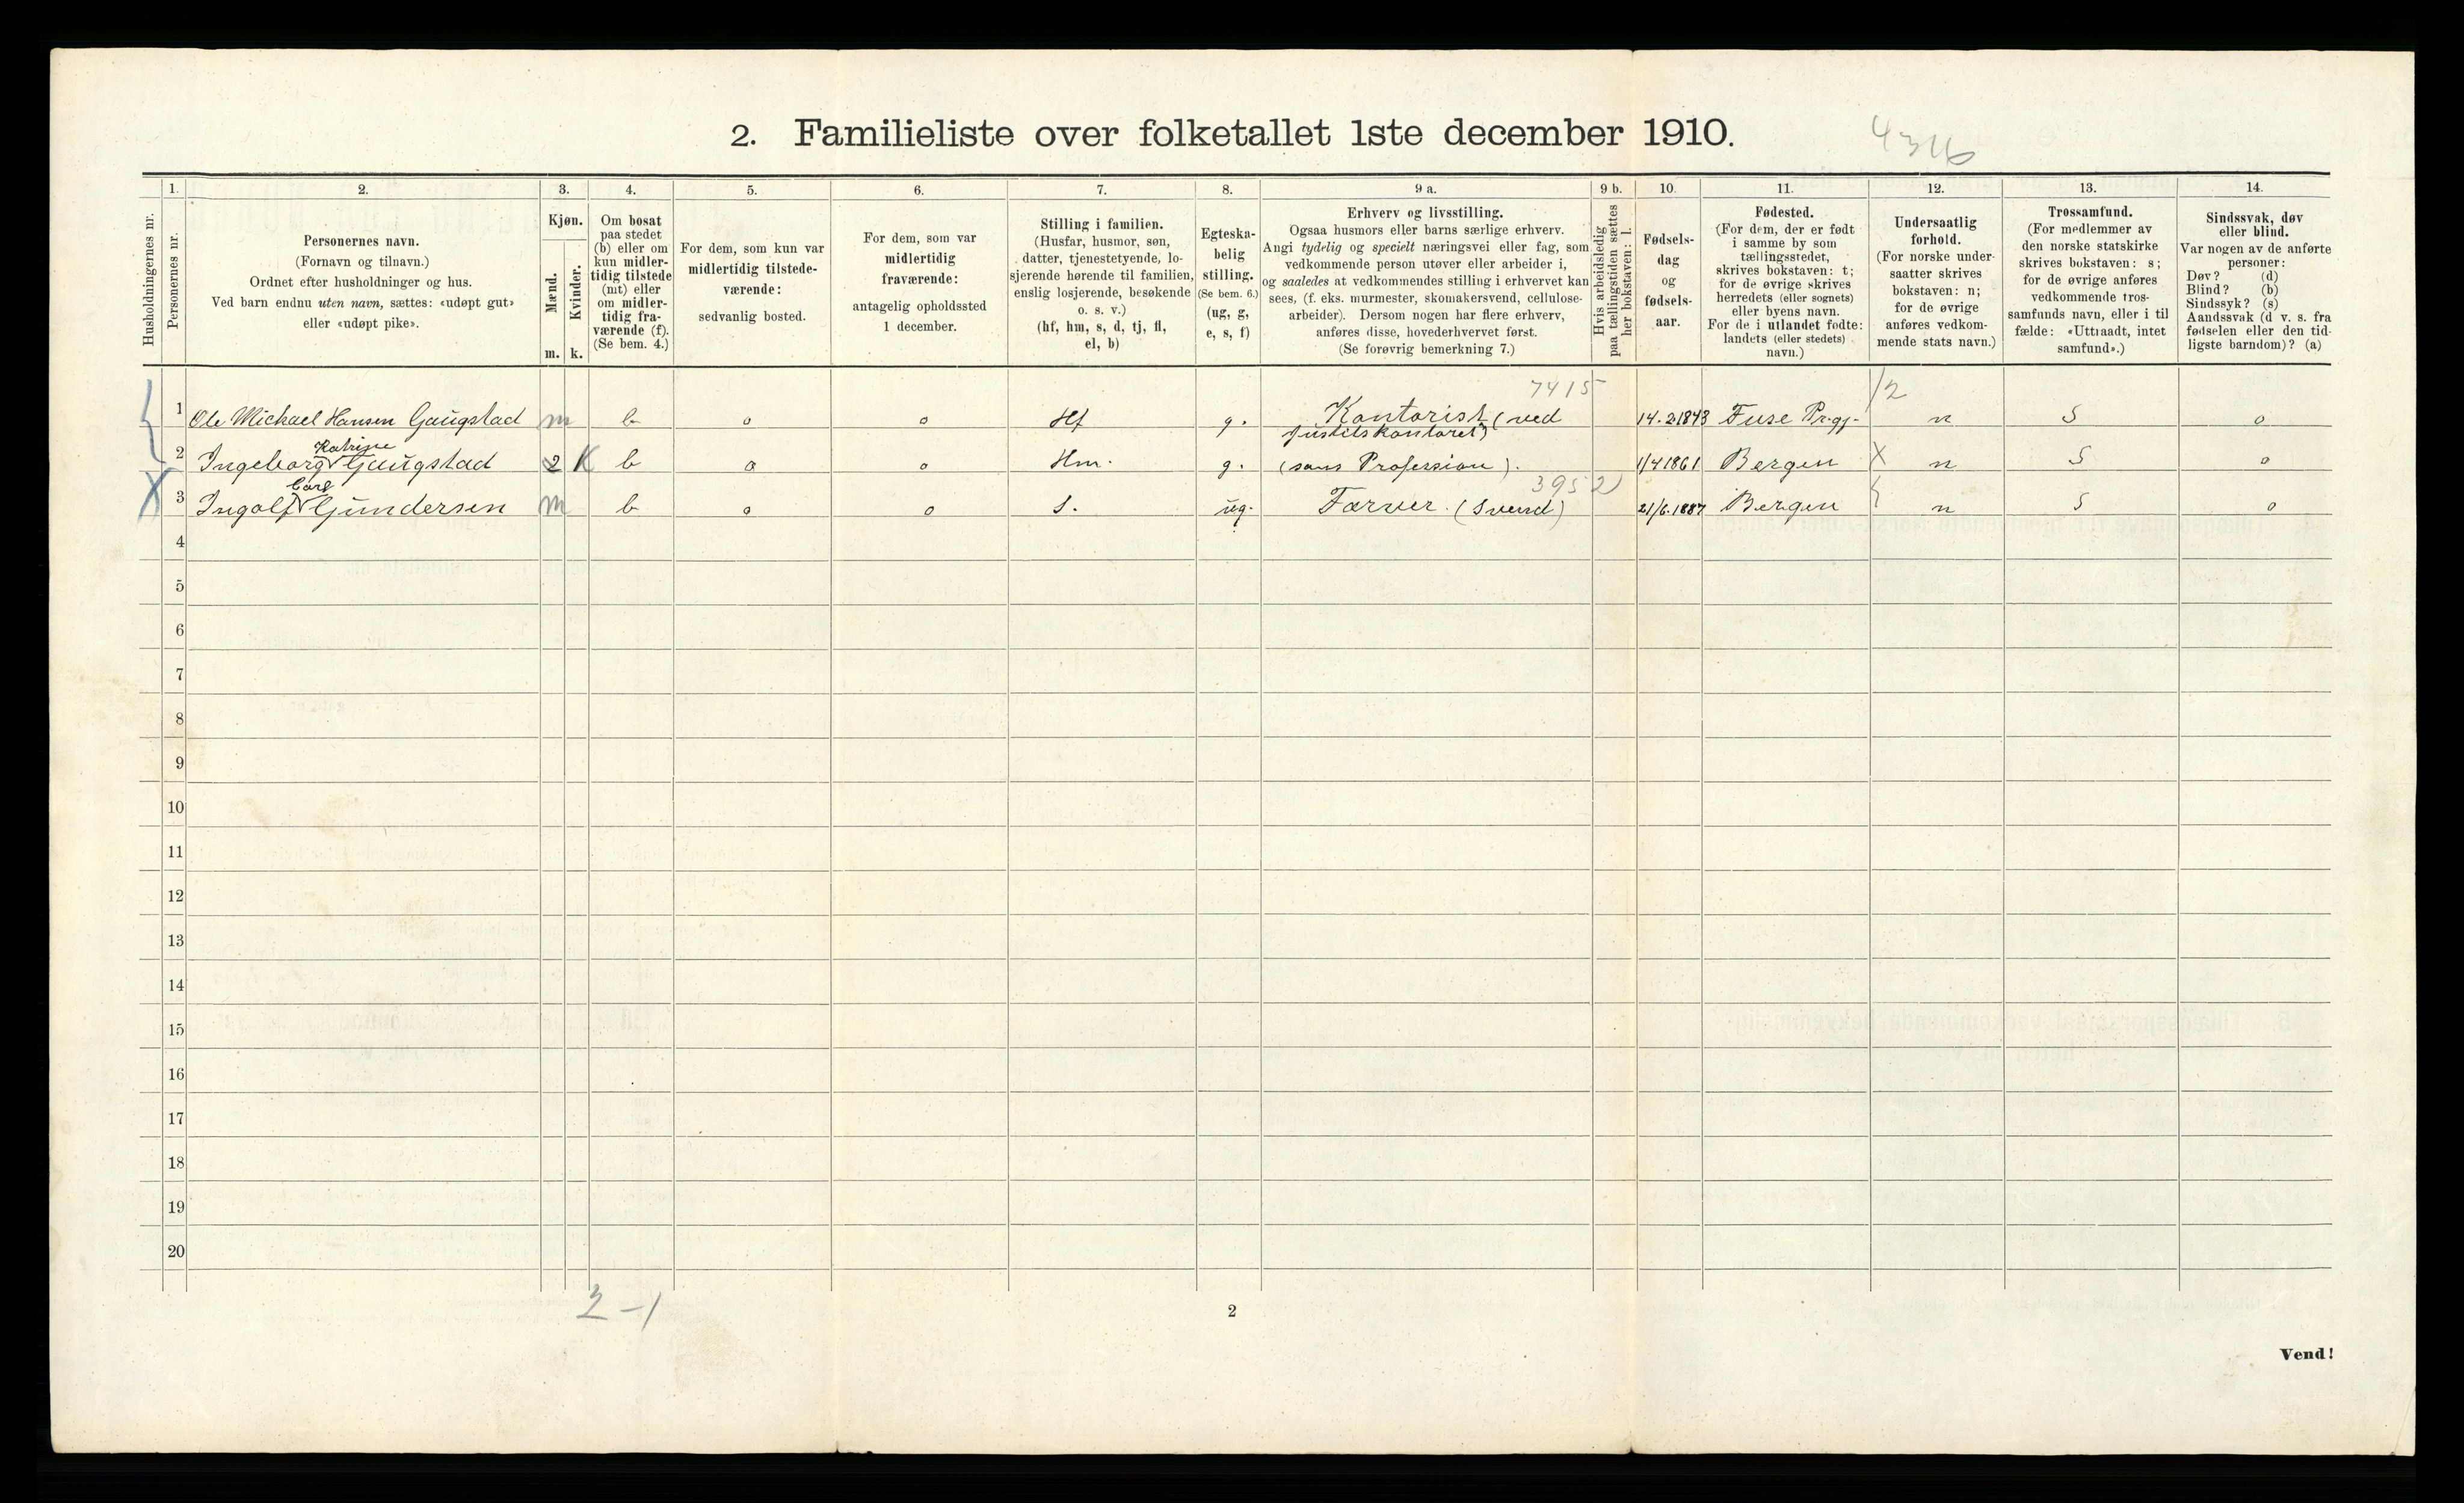 2. Familieliste over folketallet 1ste december 1910.
4316
Husholdningernes nr.
1.
Personernes nr.
2.
Personernes navn.
(Fornavn og tilnavn.)
Ordnet efter husholdninger og hus.
Ved barn endnu uten navn, sættes: «udøpt gut»
eller «udøpt pike».
3.
Kjøn.
Mænd.
Kvinder.
m. k.
4.
Om bosat
paa stedet
(b) eller om
kun midler-
tidig tilstede
(mt) eller
om midler-
tidig fra-
værende (f).
(Se bem. 4.)
5.
For dem, som kun var
midlertidig tilstede-
værende:
sedvanlig bosted.
6.
For dem, som var
midlertidig
fraværende:
antagelig opholdssted
1 december.
7.
Stilling i familien.
(Husfar, husmor, søn,
datter, tjenestetyende, lo-
sjerende hørende til familien,
enslig losjerende, besøkende
o. s. v.)
(hf, hm, s, d, tj, fl,
el, b)
8.
Egteska-
belig
stilling.
(Se bem. 6.)
(ug, g,
e, s, f)
9 a.
Erhverv og livsstilling.
Ogsaa husmors eller barns særlige erhverv.
Angi tydelig og specielt næringsvei eller fag, som
vedkommende person utøver eller arbeider i,
og saaledes at vedkommendes stilling i erhvervet kan
sees, (f. eks. murmester, skomakersvend, cellulose-
arbeider). Dersom nogen har flere erhverv,
anføres disse, hovederhvervet først.
(Se forøvrig bemerkning 7.)
9 b.
Hvis arbeidsledig
paa tællingstiden sættes
her bokstaven: l.
10.
Fødsels-
dag
og
fødsels-
aar.
11.
Fødested.
(For dem, der er født
i samme by som
tællingsstedet,
skrives bokstaven: t;
for de øvrige skrives
herredets (eller sognets)
eller byens navn.
For de i utlandet fødte:
landets (eller stedets)
navn.)
12.
Undersaatlig
forhold.
(For norske under-
saatter skrives
bokstaven: n;
for de øvrige
anføres vedkom-
mende stats navn.)
13.
Trossamfund.
(For medlemmer av
den norske statskirke
skrives bokstaven: s;
for de øvrige anføres
vedkommende tros-
samfunds navn, eller i til
fælde: «Uttraadt, intet
samfund».)
14.
Sindssvak, døv
eller blind.
Var nogen av de anførte
personer:
Døv? (d)
Blind? (b)
Sindssyk? (s)
Aandssvak (d v. s. fra
fødselen eller den tid-
ligste barndom)? (a)
7415
1 Ole Michael Hansen Gaugstad m b o o Hf g. Kontorist (ved 14.2.1843 Fuse Pr.gj. /2 n S o
Justitskontoret)
Katrine
2 Ingeborg Gaugstad 2 K b o o Hm. g. (sans Profession). 1/4 1861 Bergen X n S o
3952
Carl
3 Ingolf Gundersen m b o o S. ug. Farver. (Svend) 21/6.1887 Bergen n S o
4
5
6
7
8
9
10
11
12
13
14
15
16
17
18
19
20
2 - 1
2
Vend!